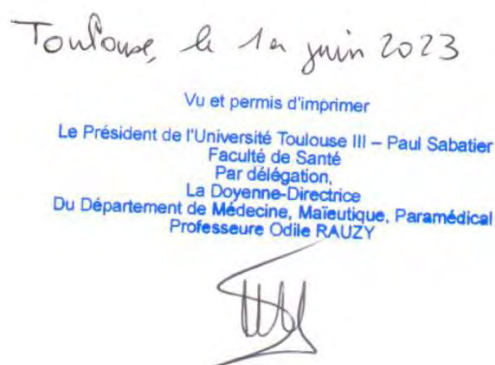 Toulouse, le 1er juin 2023
Vu et permis d'imprimer
Le Président de l'Université Toulouse III – Paul Sabatier
Faculté de Santé
Par délégation,
La Doyenne-Directrice
Du Département de Médecine, Maïeutique, Paramédical
Professeure Odile RAUZY